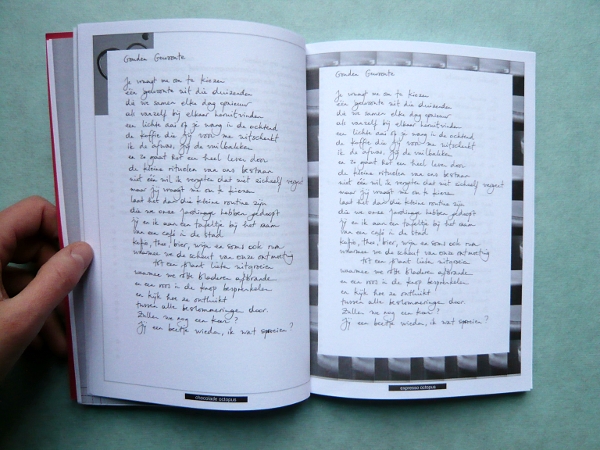 Gouden Gewoonte
Je vraagt me om te kiezen
één gewoonte uit die duizenden
die we samen elke dag opnieuw
als vanzelf bij elkaar
een lichte aai op je wang in de ochtend
de koffie die jij voor me uitschenkt
ik de afwas, jij de vuilbakken
en zo gaat het een heel leven door
de kleine rituelen van ons bestaan
niet één wil ik vergeten dat niet zichzelf vergeet
maar jij vraagt mij om te kiezen
laat het dan die kleine routine zijn
die we onze hebben gedoopt
jij en ik aan een tafeltje bij het raam
van een café in de stad
koffie, thee, bier, wijn en soms ook
waarmee we de scheut van onze ontmoeting
tot een plant lieten uitgroeien
waarmee we rotte bladeren
en een roos in de knop besprenkelen
en kijk hoe ze ontluikt
tussen alle beslommeringen door.
Zullen we nog een keer?
Jij een beetje wieden, ik wat sproeien?
chocolade octopus
Gouden Gewoonte
Je vraagt me om te kiezen
één gewoonte uit die duizenden
die we samen elke dag opnieuw
als vanzelf bij elkaar
een lichte aai op je wang in de ochtend
de koffie die jij voor me uitschenkt
ik de afwas, jij de vuilbakken
en zo gaat het een heel leven door
de kleine rituelen van ons bestaan
niet één wil ik vergeten dat niet zichzelf vergeet
maar jij vraagt mij om te kiezen
laat het dan die kleine routine zijn
die we onze hebben gedoopt
jij en ik aan een tafeltje bij het raam
van een café in de stad
koffie, thee, bier, wijn en soms ook
waarmee we de scheut van onze ontmoeting
tot een plant lieten uitgroeien
waarmee we rotte bladeren
en een roos in de knop besprenkelen
en kijk hoe ze ontluikt
tussen alle beslommeringen door.
Zullen we nog een keer?
Jij een beetje wieden, ik wat sproeien?
espresso octopus